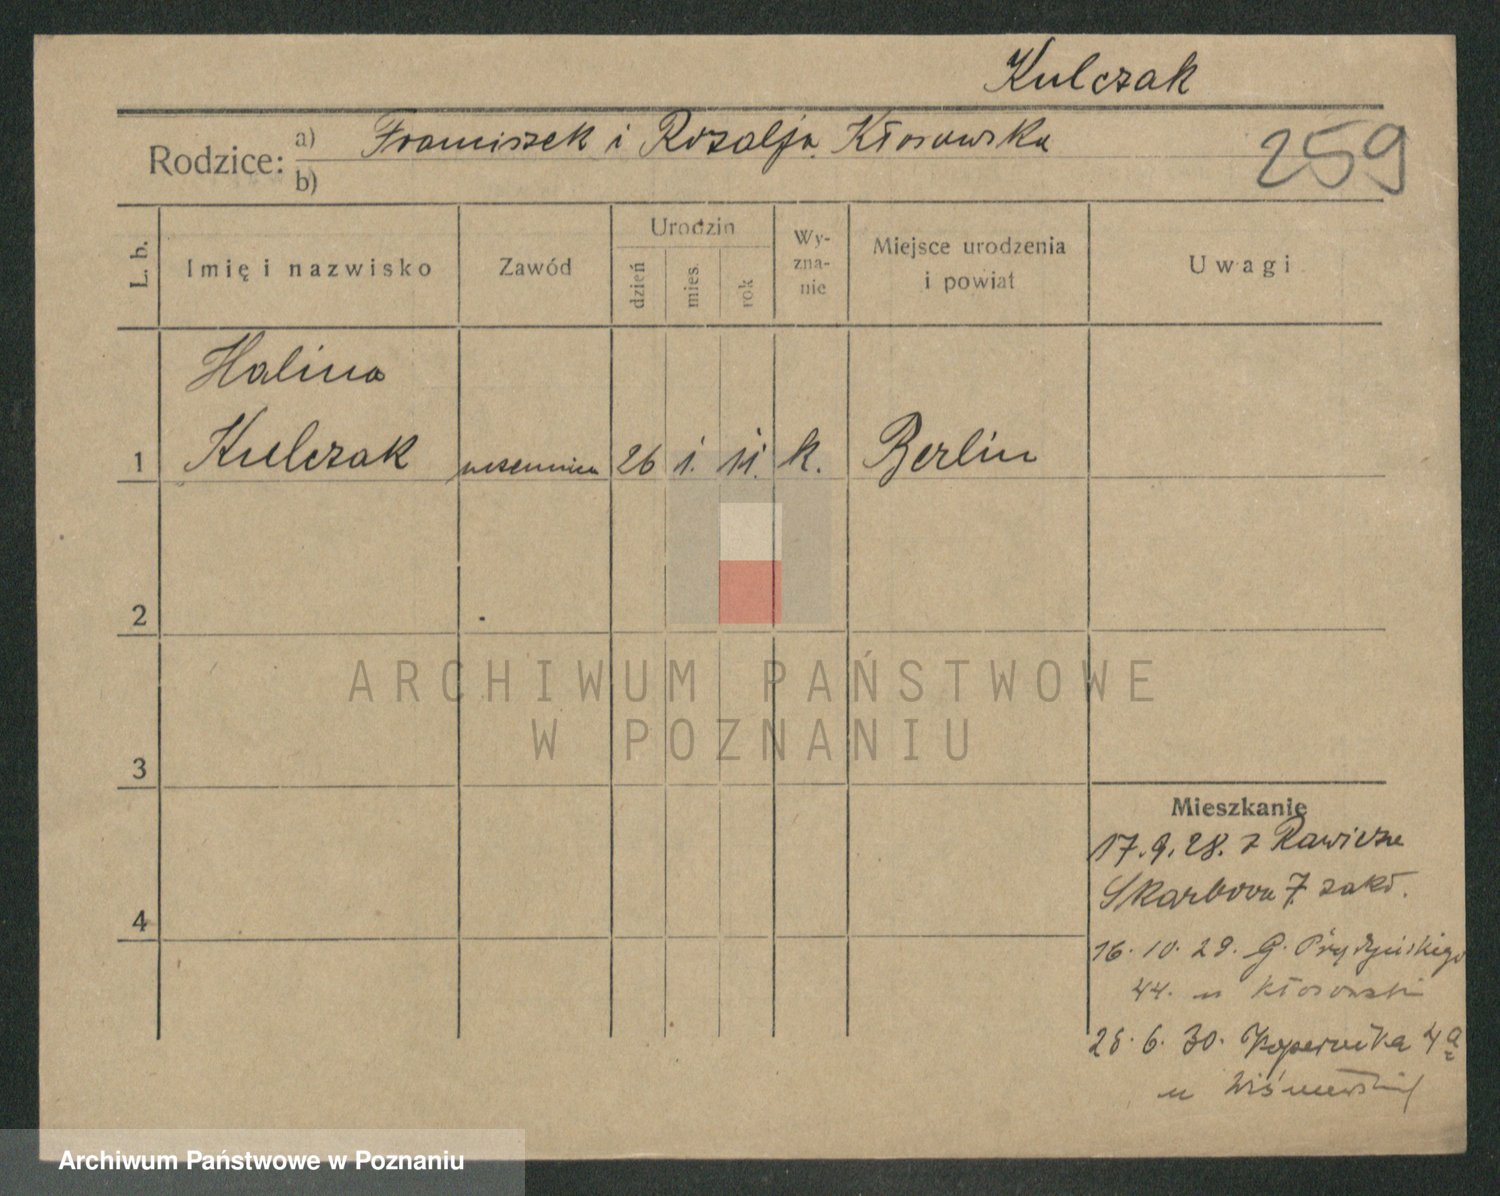 Kulczak
Rodzice: a) Franciszek i Rozalja Kłosowska
b)
259
L. b. Imię i nazwisko Zawód Urodzin dzień mies. rok Wy-zna-nie Miejsce urodzenia i powiat Uwagi
Halina
1 Kulczak uczennica 26 1. 11. k. Berlin
2
3
4
Mieszkanie
17.9.28. z Rawicza
Skarbowa 7 zakł.
16.10.29. G. Prądzyńskiego
44. u Kłosowski
28.6.30. Kopernika 4a
u
ARCHIWUM PAŃSTWOWE
W POZNANIU
Archiwum Państwowe w Poznaniu